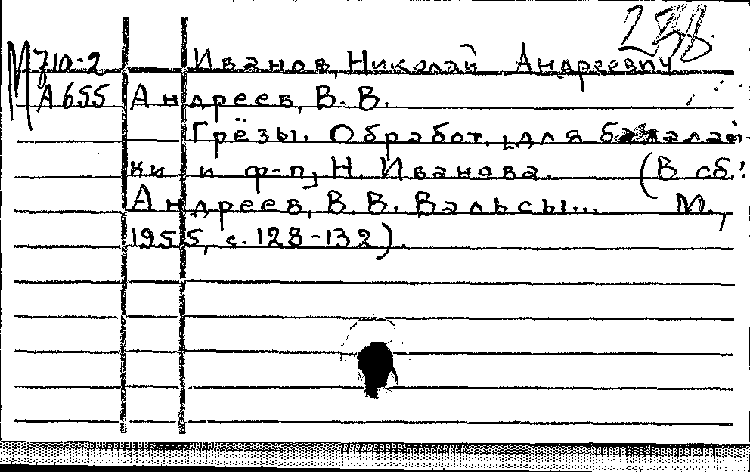 238
М 710-2 Иванов, Николай Андреевич
А655 Андреев, В.В.
Грёзы. Обработ. для балалай-
ки и ф-п, Н. Иванова. (В сб.:
Андреев, В.В. Вальсы... М.,
1955, с. 128-132).